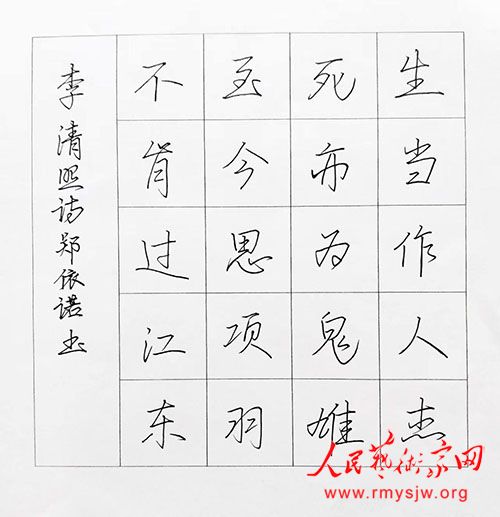 生当作人杰
死亦为鬼雄
至今思项羽
不肯过江东
李清照诗郑依诺书
人民艺术家网
www.rmysjw.org